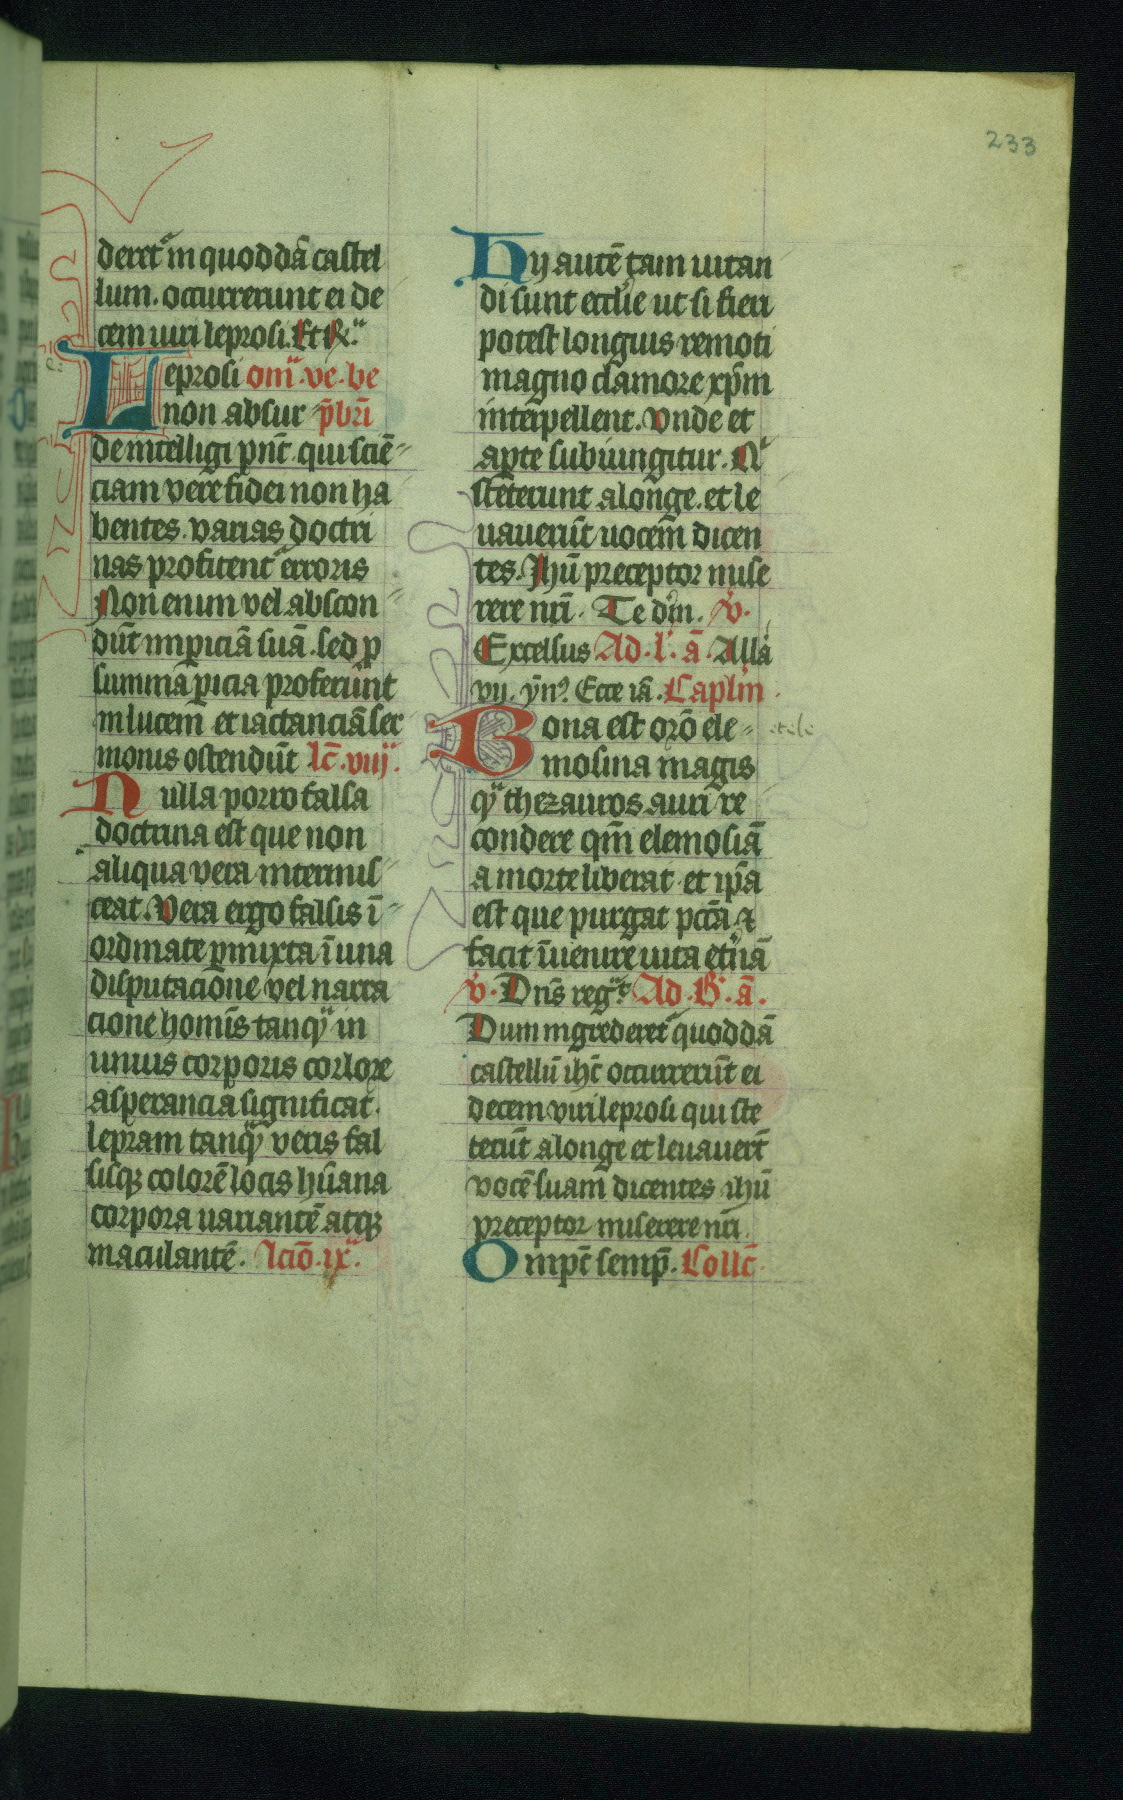 233
deret᷑ in quoddā castel
lum. occurrerunt ei de
cem uiri leprosi. Et R̃.
Leprosi om̃. ve. be
non absur p̄bri
de intelligi pn̄t. qui sciē
ciam vere fidei non ha
bentes. varias doctri
nas profitent᷑ erroris
Non enim vel abscon
dūt imꝑiciā suā. sed ꝑ
summā ꝑicia proferunt
in lucem et iactanciā ser
monis ostendūt lc̄. viij.
Nulla porro falsa
doctrina est que non
aliqua vera intermis
ceat. Vera ergo falsis ī
ordinate ꝑmixta ī una
disputacione vel narra
cione hominis tanqͣ in
unius corporis colore
asperancia significat.
lepram tanqͣ veris fal
sisqꝫ colorē locis hūana
corpora uariantē atqꝫ
maculantē. lciō. ix.
Hij autē tam uitan
di sunt eccl'ie ut si fieri
potest longius remoti
magno clamore xp̄m
interpellent. Vnde et
apte subiungitur. Q
steterunt a longe. et le
uauerūt uocem dicen
tes. Jhū preceptor mise
rere nr̄i. Te dm̄. v.
Excelsus Ad. l. ā. Alla
vij. ȳn. Ecce iā. Caplm̄
etele
Bona est orō ele
mosina magis
qͣ thezauros auri re
condere qm̄ elemosiā
a morte liberat et ip̄a
est que purgat pctā ⁊
facit īuenire uitā et'nā
v. Dn̄s reg. Ad. B. ā.
Dum ingrederet᷑ quoddā
castellū ihc̄ occurrerūt ei
decem viri leprosi qui ste
terūt a longe et leuauer̄t
vocē suam dicentes ihū
preceptor miserere nr̄i.
Omp̄c semp̄. Collc̄